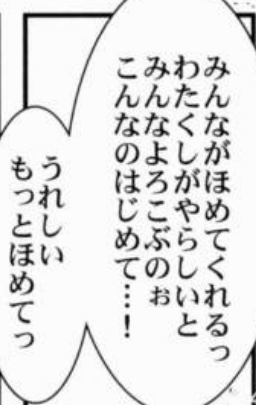 みんながほめてくれるっ
わたくしがやらしいと
みんなよろこぶのぉ
こんなのはじめて…!
うれしい
もっとほめてっ